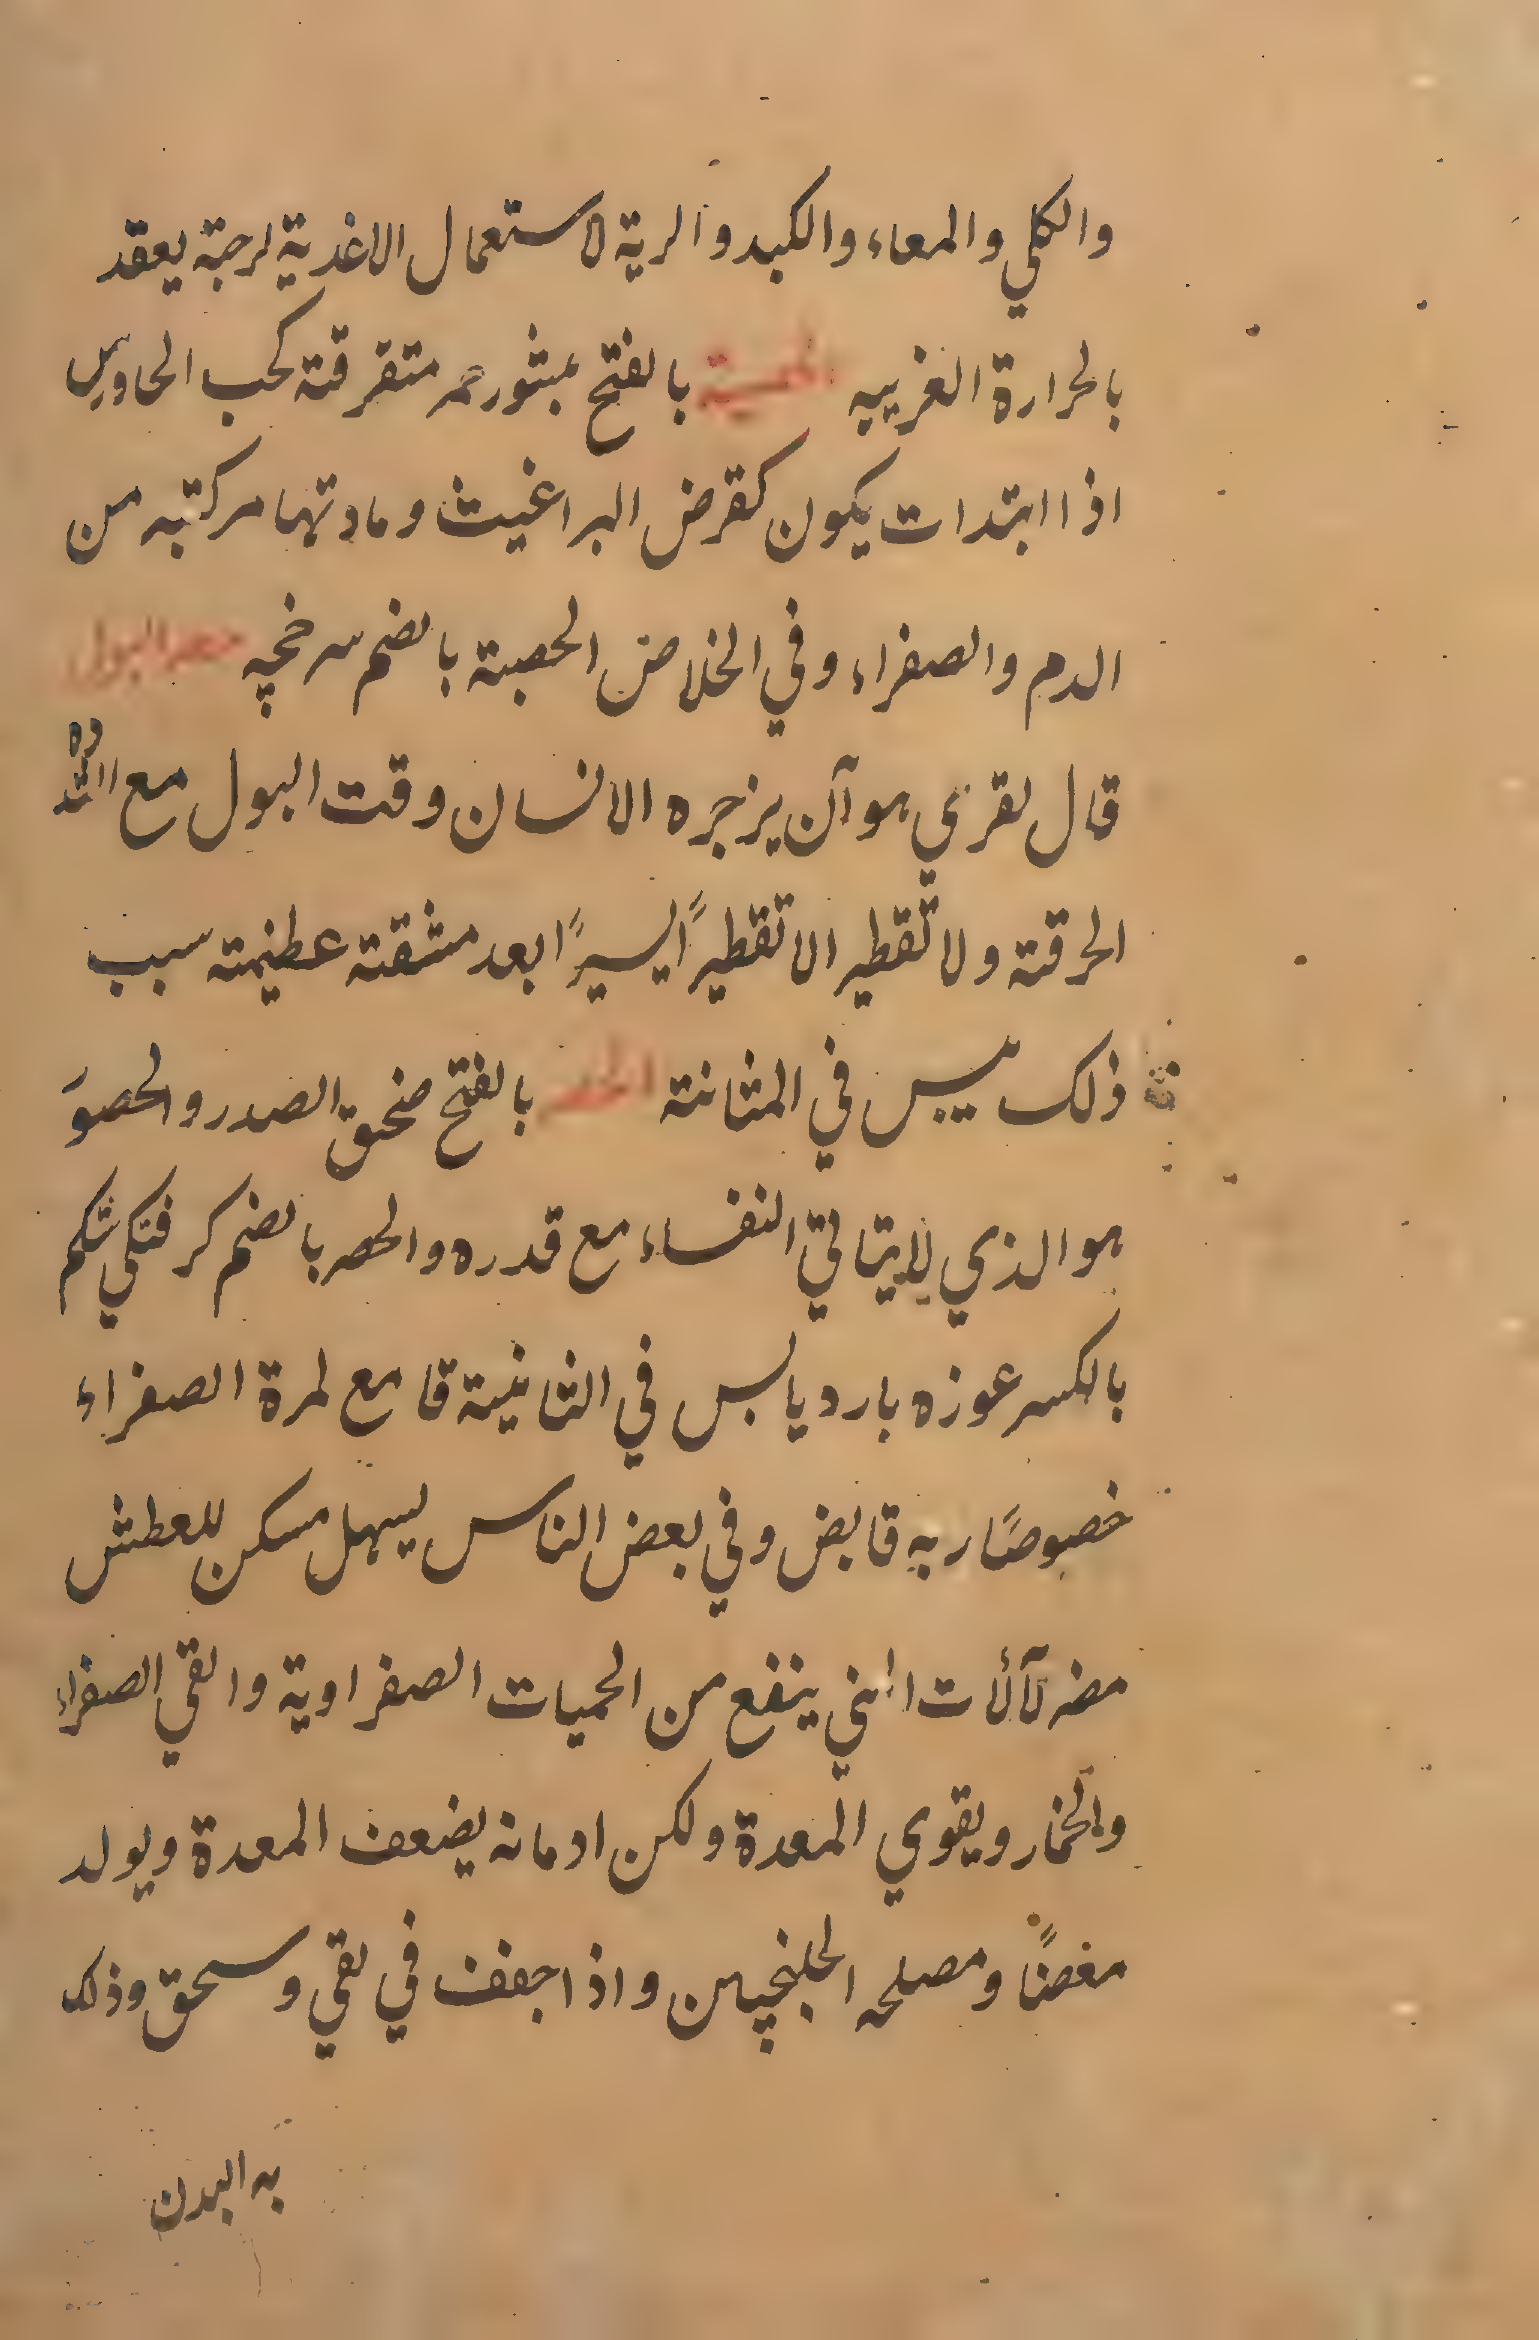 والكلي والمعاء والكبد والرية لاستعمال الاغدية لرجبة يعقد
بالحرارة الغريبه الحصبة بالفتح بثور حمر متفرقة كحب الجاورس
اذا ابتدات يكون كقرض البراغيث ومادتها مركبة من
الدم والصفراء وفي الخلاص الحصبة بالضم سرخچه حصر البول
قال لقرى هو آن يزجره الانسان وقت البول مع
الحرقة ولا تقطير الا تقطيرًا يسيرًا بعد مشقة عظيمة سبب
ذلك يبس في المثانة الحصر بالفتح ضحق الصدر والحصوَ
هو الذي لايتاتي النفساء مع قدره والحصر بالضم كرفتكي شكم
بالكسر عوزه بارد يابس في الثانية قامع لمرة الصفراء
خصوصًا ربه قابض وفي بعض الناس ليسهل مسكن للعطش
مضر لآلات ينفع من الحميات الصفراوية والقي الصفراء
والخمار ويقوي المعدة ولكن ادمانه يضعف المعدة ويولد
مغصًا ومصلحه الجلنجبين واذا جفف في لقي وسحق وذلك
به البدن